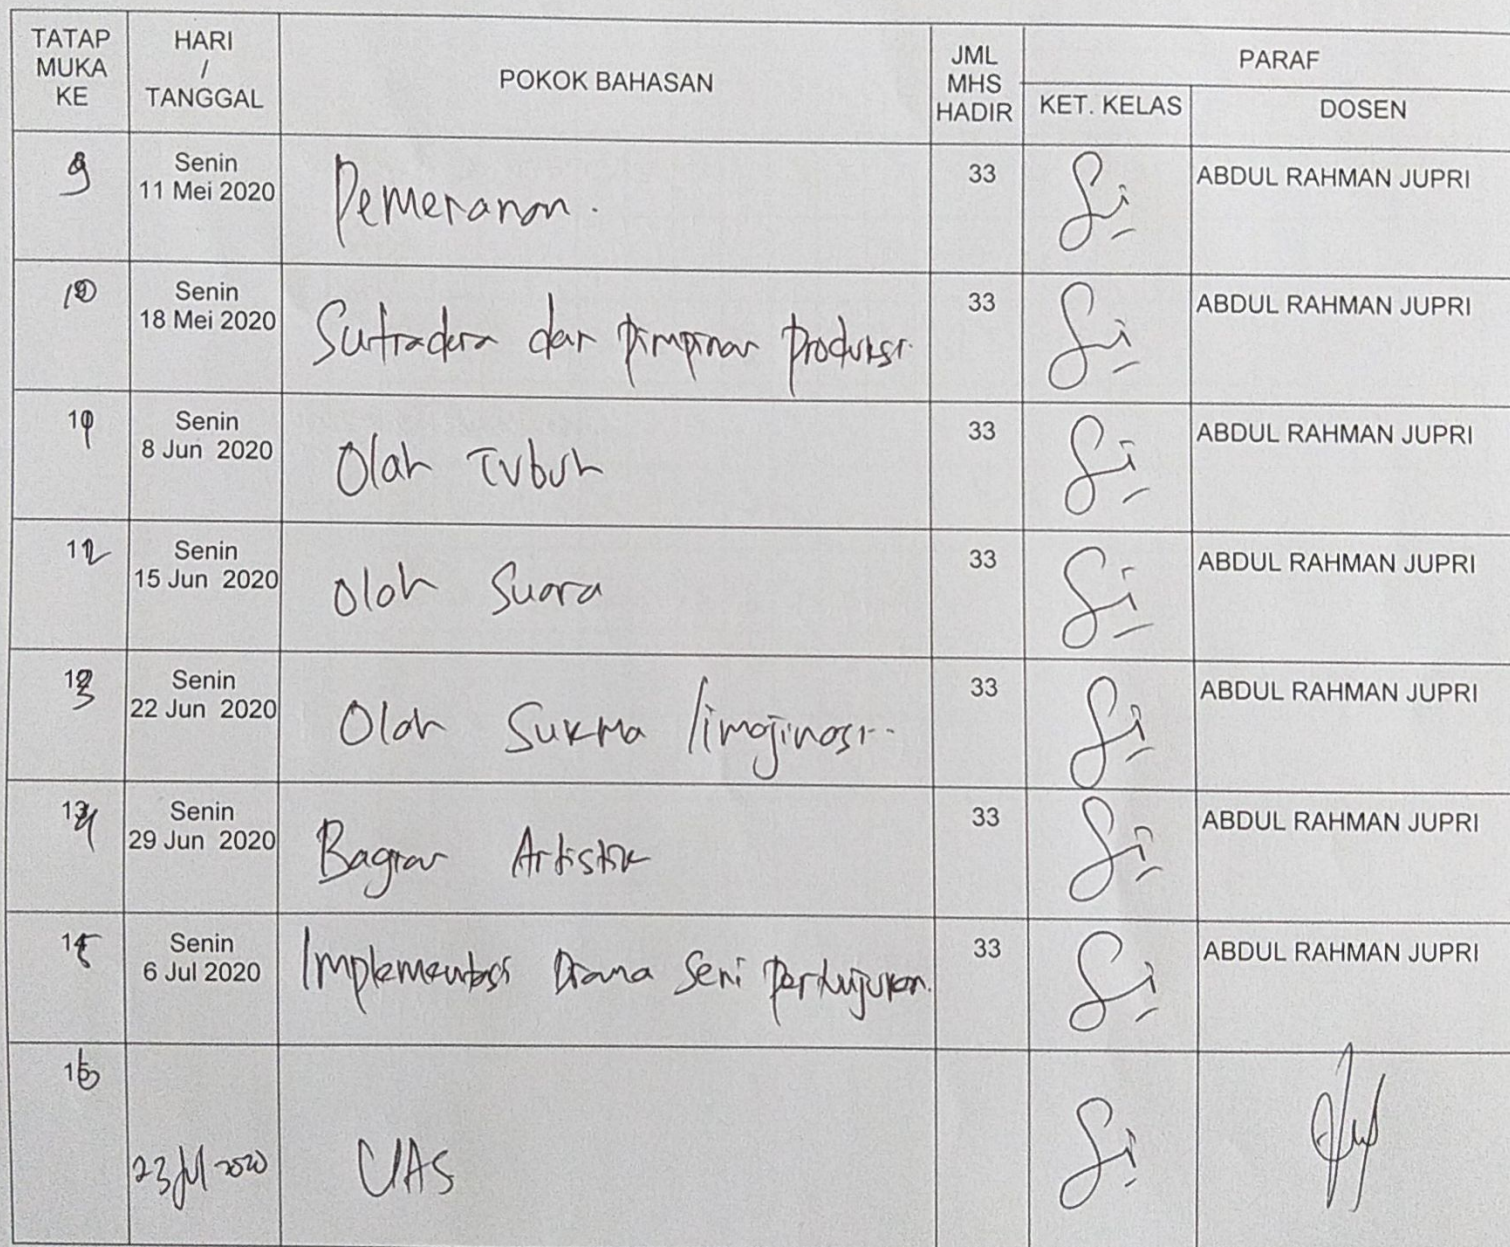 TATAP MUKA KE HARI / TANGGAL POKOK BAHASAN JML MHS HADIR PARAF
KET. KELAS DOSEN
9 Senin 11 Mei 2020 Pemeranan. 33 ABDUL RAHMAN JUPRI
10 Senin 18 Mei 2020 Sutradara dan Pimpinan Produksi. 33 ABDUL RAHMAN JUPRI
11 Senin 8 Jun 2020 Olah Tubuh 33 ABDUL RAHMAN JUPRI
12 Senin 15 Jun 2020 Olah Suara 33 ABDUL RAHMAN JUPRI
13 Senin 22 Jun 2020 Olah Sukma /imajinasi.. 33 ABDUL RAHMAN JUPRI
14 Senin 29 Jun 2020 Bagian Artistik 33 ABDUL RAHMAN JUPRI
15 Senin 6 Jul 2020 Implementasi Drama Seni Pertunjukan. 33 ABDUL RAHMAN JUPRI
16 23 Jul 2020 UAS